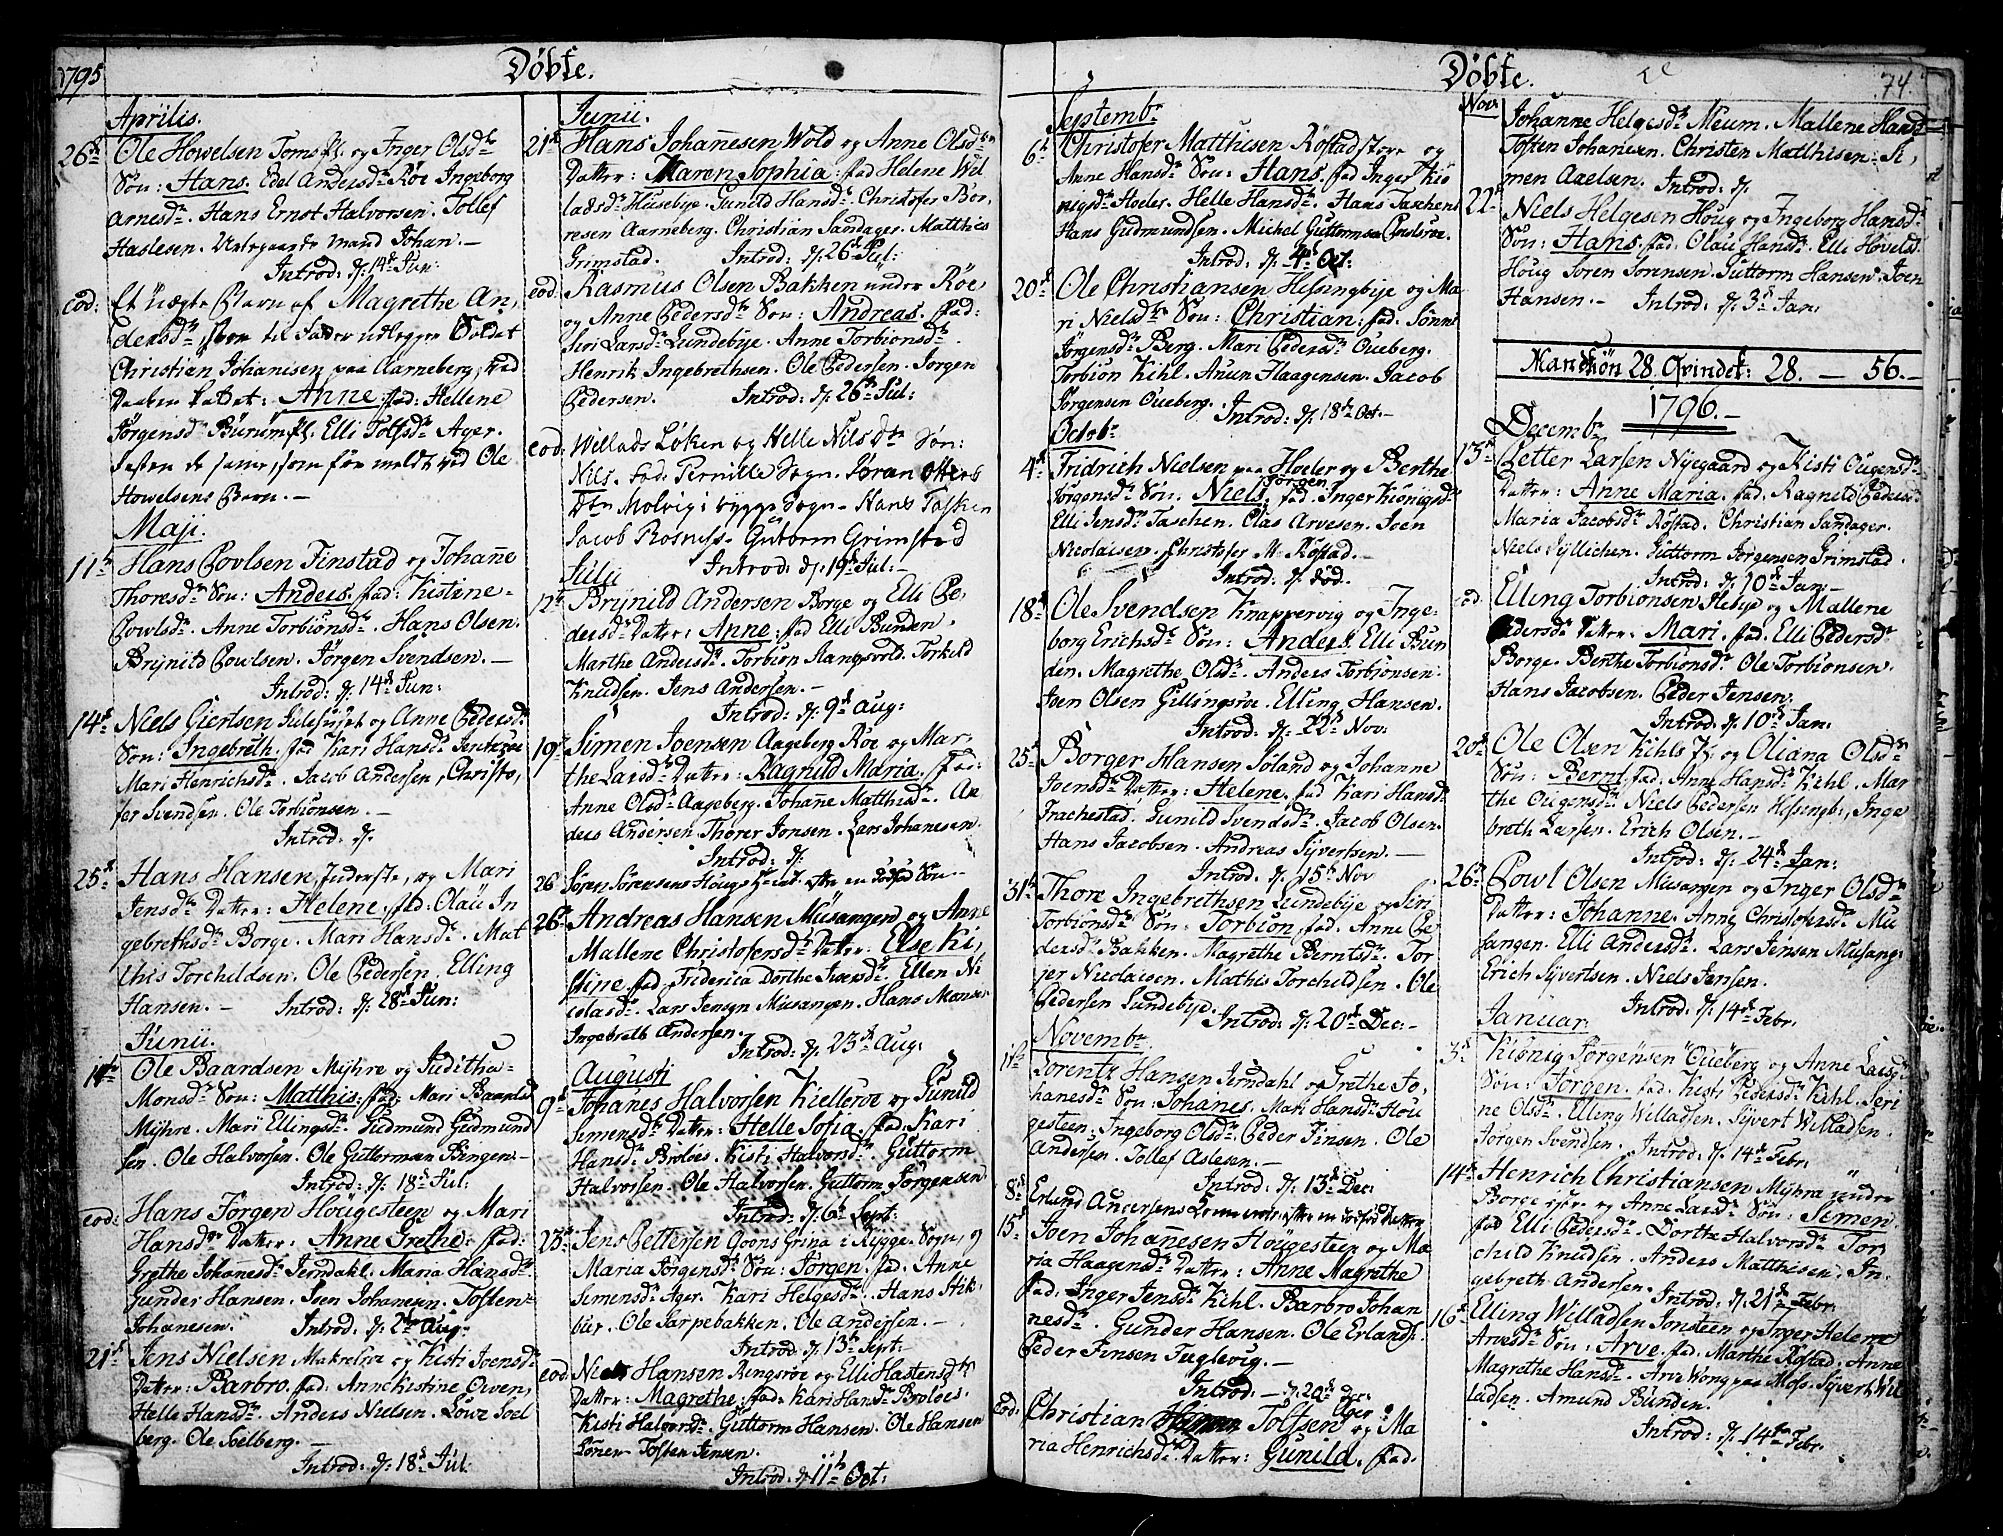 1795
Döbte.
Aprilis.
26de Ole Howelsen Tomspl. og Inger Olsdtr
Sön: Hans. Edel Andersdr Röe Ingeborg
Arnesdr. Hans Ernst Halvorsen. Tollef
Haslesen. Unkegaards mand Johan.
Introd: d. 14de Jun:
eod: Et uægte Barn af Magrethe An,
dersdtr, som til Fader udlegger Soldat
Christian Johanesen paa Aarneberg, ved
Daaben kaldet: Anne. fad: Hellene
Jörgensdr Burumpl. Elli Tolfsdr Ager.
Resten de samme, som före meldt ved Ole
Howelsens Barn.
Maji.
11te Hans Povlsen Finstad og Johanne
Thoresdr Sön: Anders. fad: Kistine
Powlsdr. Anne Torbiönsdr. Hans Olsen.
Brynild Povlsen. Jörgen Svendsen.
Introd: d. 14de Jun:
14de Niels Giertsen Julehuset og Anne Pedersdr
Sön: Ingebreth. fad Kari Hansdr
Mari Henrichsdr. Jacob Andersen, Christo,
fer Svendsen. Ole Torbiönsen.
Introd: d.
25de Hans Hansen Inderste, og Mari
Jensdr Datter: Helene. fad: Olau In
gebrethsdr Borge. Mari Hansdr. Mat
this Torchildsen. Ole Pedersen. Elling
Hansen. Introd: d. 28de Jun:
Junii.
14de Ole Baardsen Myhre og Juditha
Monsdr Sön: Matthis. fad: Mari
Myhre. Mari Ellingsdr. Gudmund Gudmund
sen. Ole Halvorsen. Ole Guttorman Bingen.
Introd: d. 18de Jul:
eod: Hans Jörgen Höugesteen og Mari
Hansdr Datter: Anne Grethe. fad:
Grethe Johanesdr Jerndahl. Maria Hansdr
Gunder Hansen. Joen Johanesen. Tosten
Johanesen. Introd: d. 2den Aug:
21de Jens Nielsen Makrelröe og Kisti Joensdr
Datter: Barbro. fad: Anne Kistine Owen,
Helle Hansdr. Anders Nielsen. Löwe Soel
berg. Ole Soelberg.
Introd: d. 18de Jul:
Junii.
21de Hans Johanesen Wold og Anne Olsdtr
Datter: Karen Sophia. fad Helene Wil
ladsdr Husebye. Gunild Hansdr. Christofer Bor,
resen Aarneberg. Christian Sandager. Matthis
Grimstad. Introd: d. 26de Jul:
eod: Rasmus Olsen Bakken under Röe
og Anne Pedersdr Sön: Andreas. fad:
Siri Larsdr Lundebye. Anne Torbionsdr.
Henrik Ingebrethsen. Ole Pedersen. Jörgen
Pedersen. Introd: d. 26de Jul:
eod: Willads Löken og Helle Nilsdtr Sön:
Nils. Fad. Pernille Sogn. Jöran Otters
Dtr Molvig i rygge Sogn. Hans Tasken
Jacob Rosness. Guttorm Grimsted
Introd: d. 19de Jul:
Julii
12te Brynild Andersen Borge og Elli Pe,
dersdr Datter: Anne. fad Elli Bunden,
Marthe Andersdr. Torbiön Hangsvold. Torkild
Knudsen. Jens Andersen.
Introd: d. 9de Aug:
19de Simen Joensen Aageberg Röe og Mar,
the Larsdr Datter: Ragnild Maria. fad:
Anne Olsdr Aageberg. Johanne Matthisdr. An
ders Andersen. Thorer Jonsen. Lars Johanesen.
Introd: d.
26 Sören Sörensens Höugs Hust. efter en dödfød Sön.
26de Andreas Hansen Musangen og Anne
Mallene Christofersdr Datter: Else Ki,
stine. fad Friderica Dorthe Iversdr. Ellen Ni
colasdr. Lars Jensen Musangen. Hans Monsen
Ingebreth Andersen.
Introd: d. 23de Aug:
Augusti
9de Johanes Halvorsen Kielleröe og Gunild
Simensdr Datter: Helle Sofia. fad: Kari
Hansdr Broloes. Kisti Halvorsdr. Guttorm
Halvorsen. Ole Halvorsen. Guttorm Jörgensen.
Introd: d. 6te Sept:
23de Jens Pettersen Goons Grina i Rygge Sogn, og
Maria Jörgensdr Sön: Jörgen. fad. Anne
Simensdr Ager. Kari Helgesdr. Hans Hik,
bur. Ole Sarpebakken. Ole Andersen.
Introd: d. 13de Sept:
eod: Niels Hansen Ringsröe og Elli Hastensdtr
Datter: Magrethe. fad: Kari Hansdr Broloes.
Kisti Halvorsdr. Guttorm Hansen. Ole Hansen
Lönen Tosten Jensen.
Introd: d. 11te Oct:
Döbte. 74.
Septembr
6te Christofer Matthisen Röstad store og
Anne Hansdr Sön: Hans. fad Inger Kiö
nigsdr Hoeler. Helle Hansdr. Hans Taschen
Hans Gudmundsen. Michel Guttormsen Povlsröe.
Introd: d. 4de Oct:
20de Ole Christiansen Hesingbye og Ma
ri Nielsdtr Sön: Christian. fad. Sönni
Jörgensdr Berg. Mari Pedersdr Oueberg.
Torbiön Kihl. Anun Haagensen. Jacob
Jörgensen Oueberg. Introd: d. 18de Oct.
Octobr
4de Fridrich Nielsen paa Hoeler og Berthe
Jörgensdr Sön. Niels Jörgen. fad. Inger Kiönigsdr
Elli Jensdr Taschen. Clas Arvesen. Joen
Nicolaisen. Christofer M. Röstad.
Introd: d. död.
18de Ole Svendsen Knappervig og Inge,
borg Erichsdr Sön: Anders. Elli Bun
den. Magrethe Olsdr. Anders Torbiönsen.
Joen Olsen Gillingsröe. Elling Hansen.
Introd: d. 22de Nov:
25de Borger Hansen Soland og Johanne
Joensdr Datter: Helene. fad Kari Hansdr
Frachestad. Gunild Svendsdr. Jacob Olsen.
Hans Jacobsen. Andreas Syvertsen.
Introd: d. 15de Nov
31te Thore Ingebrethsen Lundebye og Siri
Torbiönsdr Sön: Torbiön. fad. Anne Pe
dersdr Bakken. Magrethe Berntsdr. Tor
jer Nicolaisen. Mathis Torchildsen. Ole
Pedersen Lundebye. Introd: d. 20de Dec:
Novembr.
1te Lorentz Hansen Jerndahl og Grethe Jo,
hanesdr Sön: Johanes. Mari Hansdr Höu
gesteen. Ingeborg Olsdr. Peder Finsen. Ole
Andersen. Tollef Aslesen.
Introd: d. 13de Dec:
8de Erlund Andersens efter en dödfød Datter
15de Joen Johanesen Höugesteen og Ma
ria Haagensdr Datter: Anne Magrethe
fad: Inger Jensdr Kihl. Barbro Johan
nesdr. Gunder Hansen. Ole Erlands.
Peder Finsen Fuglevig.
Introd: d. 20de Dec:
eod: Christian Tolfsen Ager og Ma
ria Henrichsdr Datter: Gunild. fad.
Nov:
Johanne Helgesdr Meum. Mallene Hansd
Tosten Johanesen. Christen Matthisen. Si,
men Axelsen. Introd: d.
22de Niels Helgesen Höug og Ingeborg Hansdr.
Sön: Hans. fad. Olau Hansdr. Elli Hoveld.
Höug Sören Sörensen. Guttorm Hansen. Joen
Hansen. Introd: d. 3de Jan:
Mandkiön 28. Qvindek: 28. — 56.
1796.
Decembr
13de Petter Larsen Nyegaard og Kisti Ougensdr
Datter: Anne Maria. fad. Ragnild Pedersdr
Maria Jacobsdr Röstad. Christian Sandager.
Niels Jyllichen. Guttorm Jörgensen Grimstad.
Introd: d. 10de Jan:
eod. Elling Torbiönsen Huebye og Mallene
Pedersdr Datter: Mari. fad. Elli Pedersdr
Borge. Berthe Torbiönsdr. Ole Torbiönsen.
Hans Jacobsen. Peder Jensen.
Introd: d. 10de Jan.
20de Ole Olsen Kihls Pl. og Oliana Olsdr
Sön: Bernt. fad. Anne Hansdr Kihl. Mar
the Ougensdr. Niels Pedersen Hesingb:, Inge
breth Larsen. Erich Olsen.
Introd: d. 24de Jan:
26de Powl Olsen Musangen og Inger Olsdr
Datter: Johanne. Anne Christofersdr Mu
sangen. Elli Andersdr. Lars Jensen Musang:
Erich Syvertsen. Niels Jensen.
Introd: d. 14de Febr.
Januar.
3de Kiönig Jörgensen Oueberg og Anne Larsdr
Sön: Jörgen. fad. Kisti Pedersdr Kihl. Seri
ne Olsdr. Elling Willadsen. Syvert Willadsen.
Jörgen Svendsen. Introd: d. 14de Febr.
14de Henrich Christiansen Myhra under
Borge og Anne Larsdr Sön: Simen
fad Elli Pedersdr. Dorthe Halvorsdr. Tor,
child Knudsen. Anders Matthisen. In,
gebreth Andersen. Introd: d. 21de Febr.
16de Elling Willadsen Jonsteen og Inger Helene
Arvesdr Sön: Arve. fad. Marthe Röstad. Anne
Magrethe Hansdr. Arve Kong paa Moss. Syvert Wil
ladsen. Amund Bunden.
Introd: d. 14de Febr.